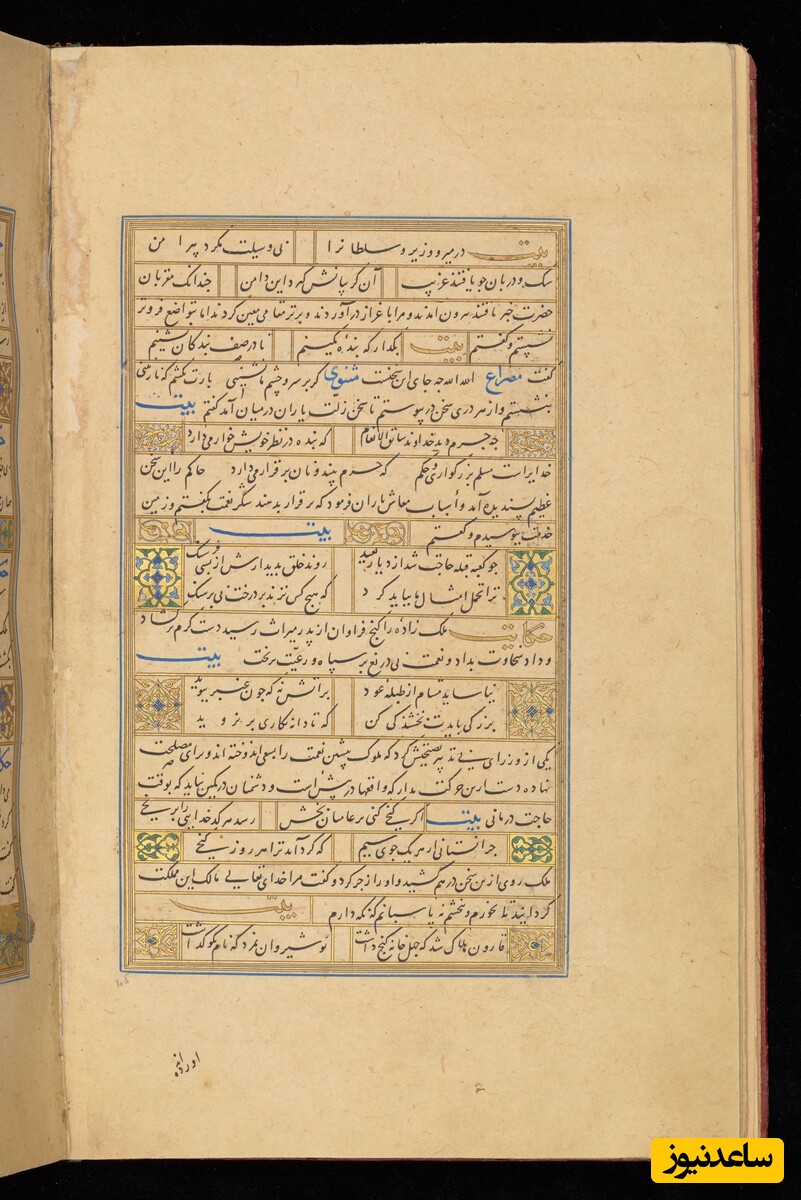 بیت در میر و وزیر و سلطانرا بی وسیلت مگرد پیرامن
سک و دربان جو یافتند غریب آن کریبانش کیرد این دامن جندانک مقربان
حضرت خبر یافتند برون آمدند و مرا باعزاز درآوردند و برتر مقامی معین کردند اما بتواضع فروتر
نشستم و کفتم بیت بکذار که بنده کمینم تا در صف بندکان نشینم
کفت مصراع الله الله جه جای این سخنست مثنوی کر بر سر و چشم ما نشینی بارت بکشم که نازنینی
بنشستم و از هر دری سخن درپیوستم تا سخن زلت یاران در میان آمد کفتم بیت
جه جرم دید خداوند سابق الانعام که بنده در نظر خویش خوار می دارد
خدایراست مسلم بزرکواری و حکم که جرم بیند و نان برقرار می دارد حاکم را این سخن
عظیم پسندیده آمد و اسباب معاش یاران فرمود که برقرار بدهند شکر نعمت بکفتم و زمین
خدمت ببوسیدم و کفتم بیت
جو کعبه قبله حاجت شد از دیار بعید روند خلق بدیدارش از بسی فرسنک
ترا تحمل امثال ما بباید کرد که هیج کس نزند بر درخت بی بر سنک
حکایت ملک زاده را کنج فراوان از پدر میراث رسید دست کرم برکشاد
و داد سخاوت بداد و نعمت بی دریغ بر سپاه و رعیت بریخت بیت
نیاساید مشام از طبله عود بر آتش نه که جون عنبر ببوید
بزرکی بایدت بخشندکی کن که تا دانه نکاری بر نروید
یکی از وزرای بی تدبیر نصیحتش کرد که ملوک پیشین نعمت را بسعی اندوخته اند و برای مصلحت
نهاده دست ازین حرکت بدار که واقعها در پیش است و دشمنان در کمین نباید که بوقت
حاجت درمانی بیت اکر کنجی کنی بر عامیان بخش رسد هر کدخدایی را برنجی
جرا نستانی از هر یک جوی سیم که کرد آید ترا هر روز کنجی
ملک روی ازین سخن درهم کشید و او را زجر کرد و کفت مرا خدای تعالی مالک این مملکت
کردانید تا بخورم و ببخشم نه پاسبانم که نکه دارم بیت
قارون هلاک شد که جهل خانه کنج داشت نوشیروان نمرد که نام نکو کذاشت
آورده اند
ساعدنیوز